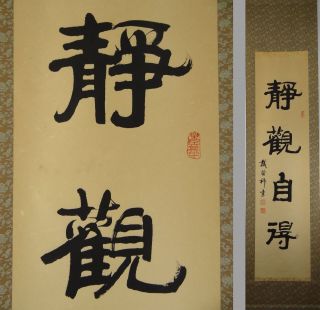 靜觀
靜觀自得